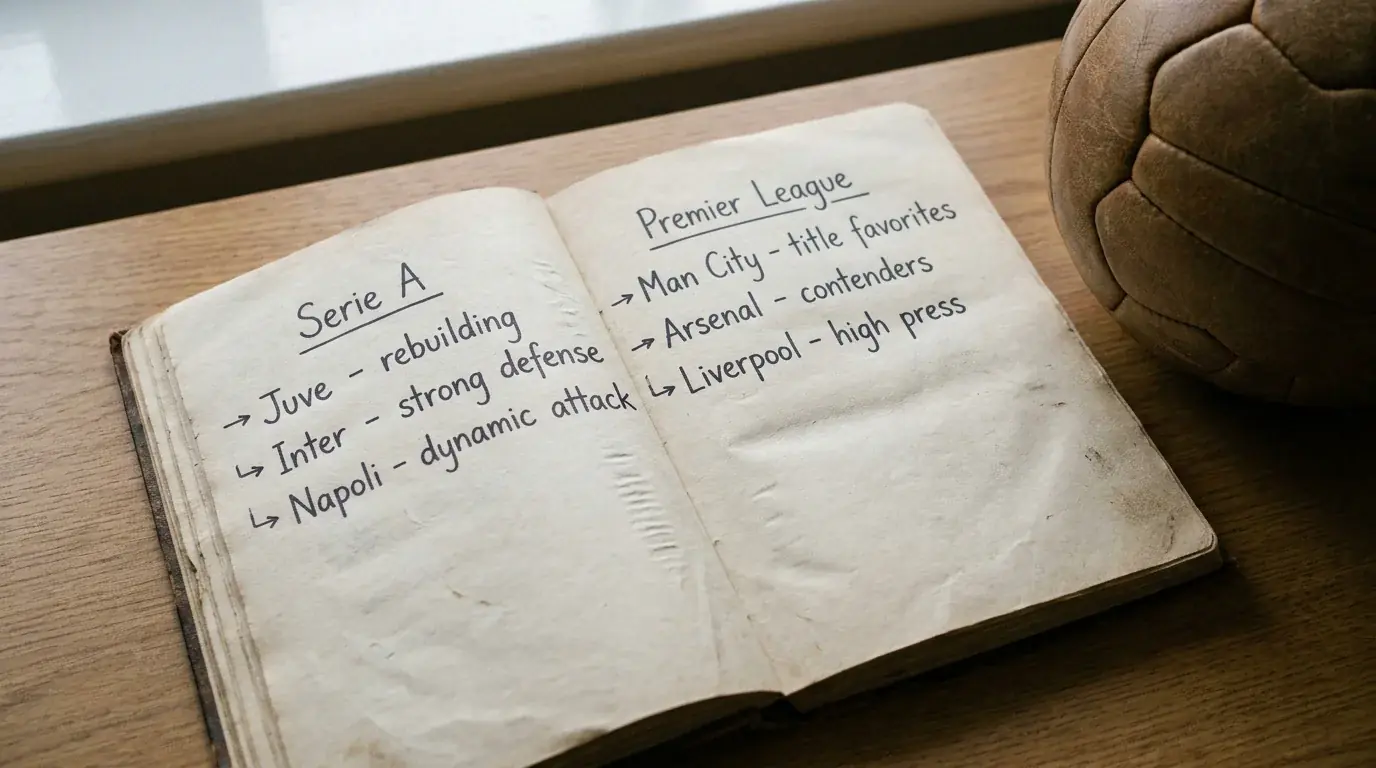 Serie A
→ Juve – rebuilding
↳ Inter – strong defense
↳ Napoli – dynamic attack
Premier League
→ Man City – title favorites
→ Arsenal – contenders
↳ Liverpool – high press